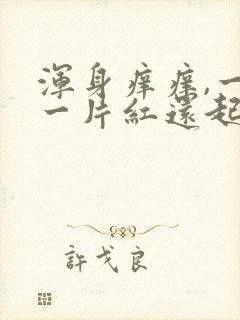 渾身痒痒,一
一片紅還起
許戈良